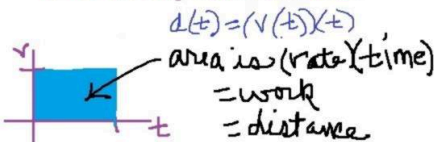 d(t)=(v(t))(t)
area is (rate)(time)
=work
=distance
v
t